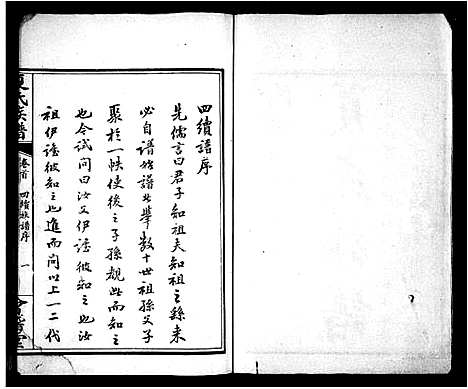 四續譜序
先儒言曰君子知祖夫知祖之孫来
必自譜始譜出舉数十世祖孫父子
聚於一帙使後之子孫覩此而知之
也今試問曰汝父伊誰彼知之也汝
祖伊誰彼知之也進而问以上一二代
氏族譜
卷首
四續族譜序
一